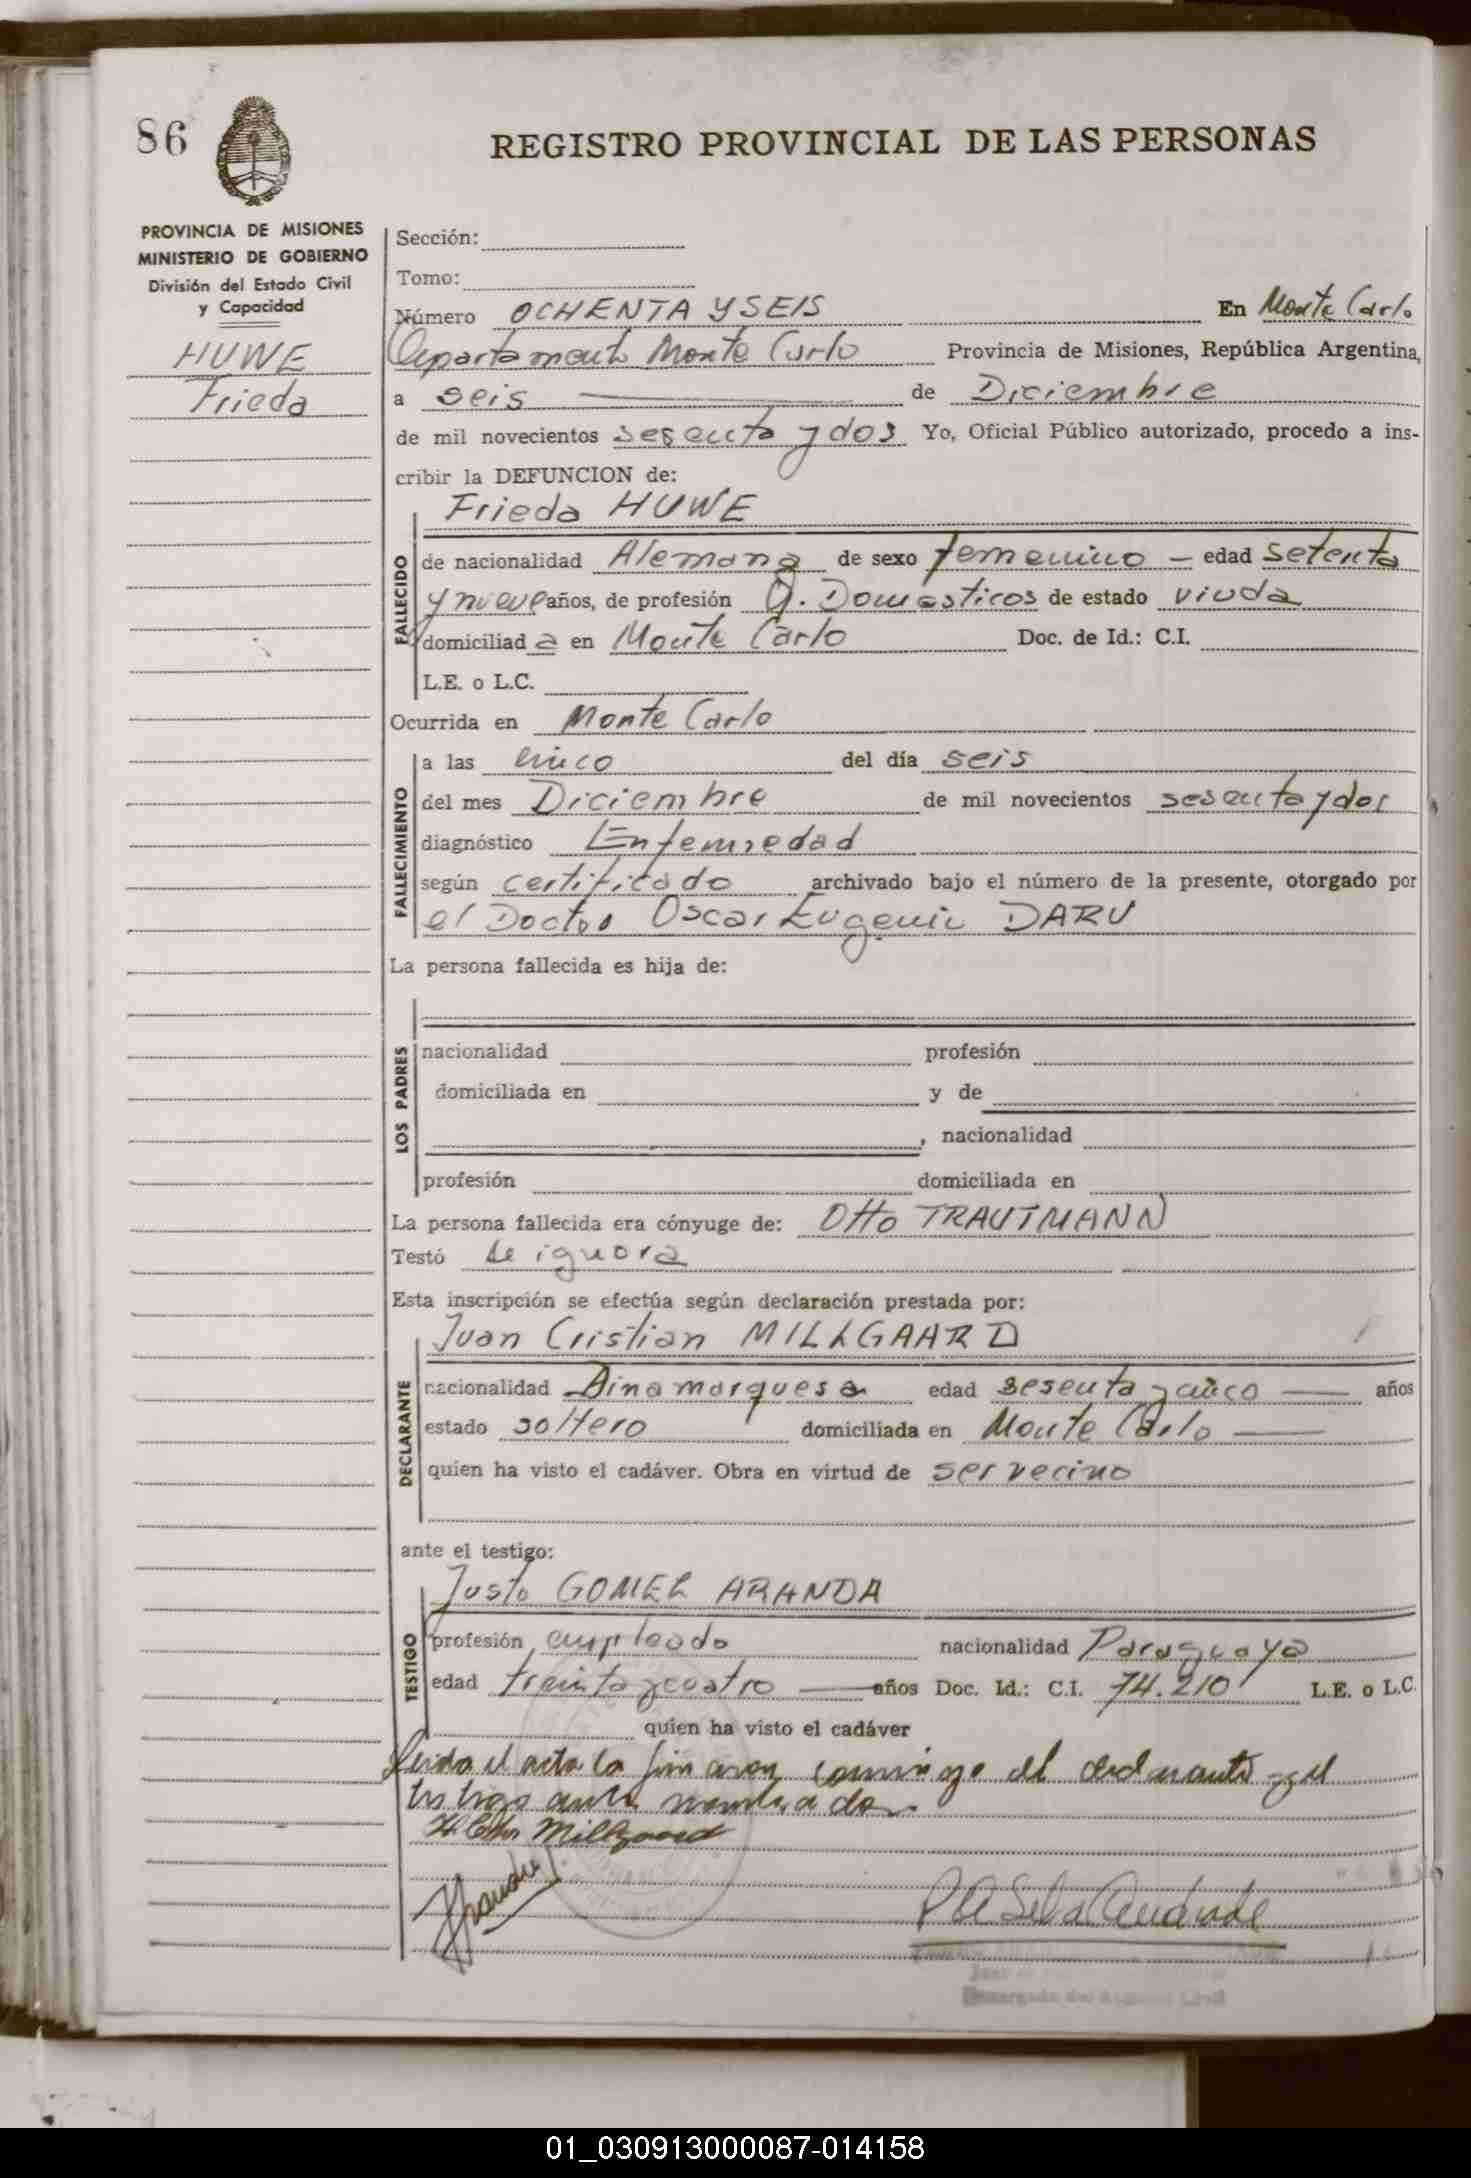 86
REGISTRO PROVINCIAL DE LAS PERSONAS
PROVINCIA DE MISIONES
MINISTERIO DE GOBIERNO
División del Estado Civil
y Capacidad
HUWE
Frieda
Sección:
Tomo:
Número OCHENTA Y SEIS En Monte Carlo
Departamento Monte Carlo Provincia de Misiones, República Argentina,
a seis de Diciembre
de mil novecientos sesenta y dos Yo, Oficial Público autorizado, procedo a ins-
cribir la DEFUNCION de:
Frieda HUWE
FALLECIDO
de nacionalidad Alemana de sexo femenino — edad setenta
y nueve años, de profesión Q. Domesticos de estado viuda
domiciliad a en Monte Carlo Doc. de Id.: C.I.
L.E. o L.C.
Ocurrida en Monte Carlo
FALLECIMIENTO
a las cinco del día seis
del mes Diciembre de mil novecientos sesenta y dos
diagnóstico Enfermedad
según certificado archivado bajo el número de la presente, otorgado por
el Doctor Oscar Eugenio DARU
La persona fallecida es hija de:
LOS PADRES
nacionalidad profesión
domiciliada en y de
, nacionalidad
profesión domiciliada en
La persona fallecida era cónyuge de: Otto TRAUTMANN
Testó se ignora
Esta inscripción se efectúa según declaración prestada por:
Juan Cristian MILLGAARD
DECLARANTE
nacionalidad Dinamarquesa edad sesenta y cinco — años
estado soltero domiciliada en Monte Carlo —
quien ha visto el cadáver. Obra en virtud de ser vecino
ante el testigo:
Justo GOMEZ ARANDA
TESTIGO
profesión empleado nacionalidad Paraguaya
edad treinta y cuatro — años Doc. Id.: C.I. 74.210 L.E. o L.C.
quien ha visto el cadáver
Leida el acta la firman conmigo el declarante y el
testigo ante nombrados.
Millgaard
Encargado del Registro Civil
01_030913000087-014158